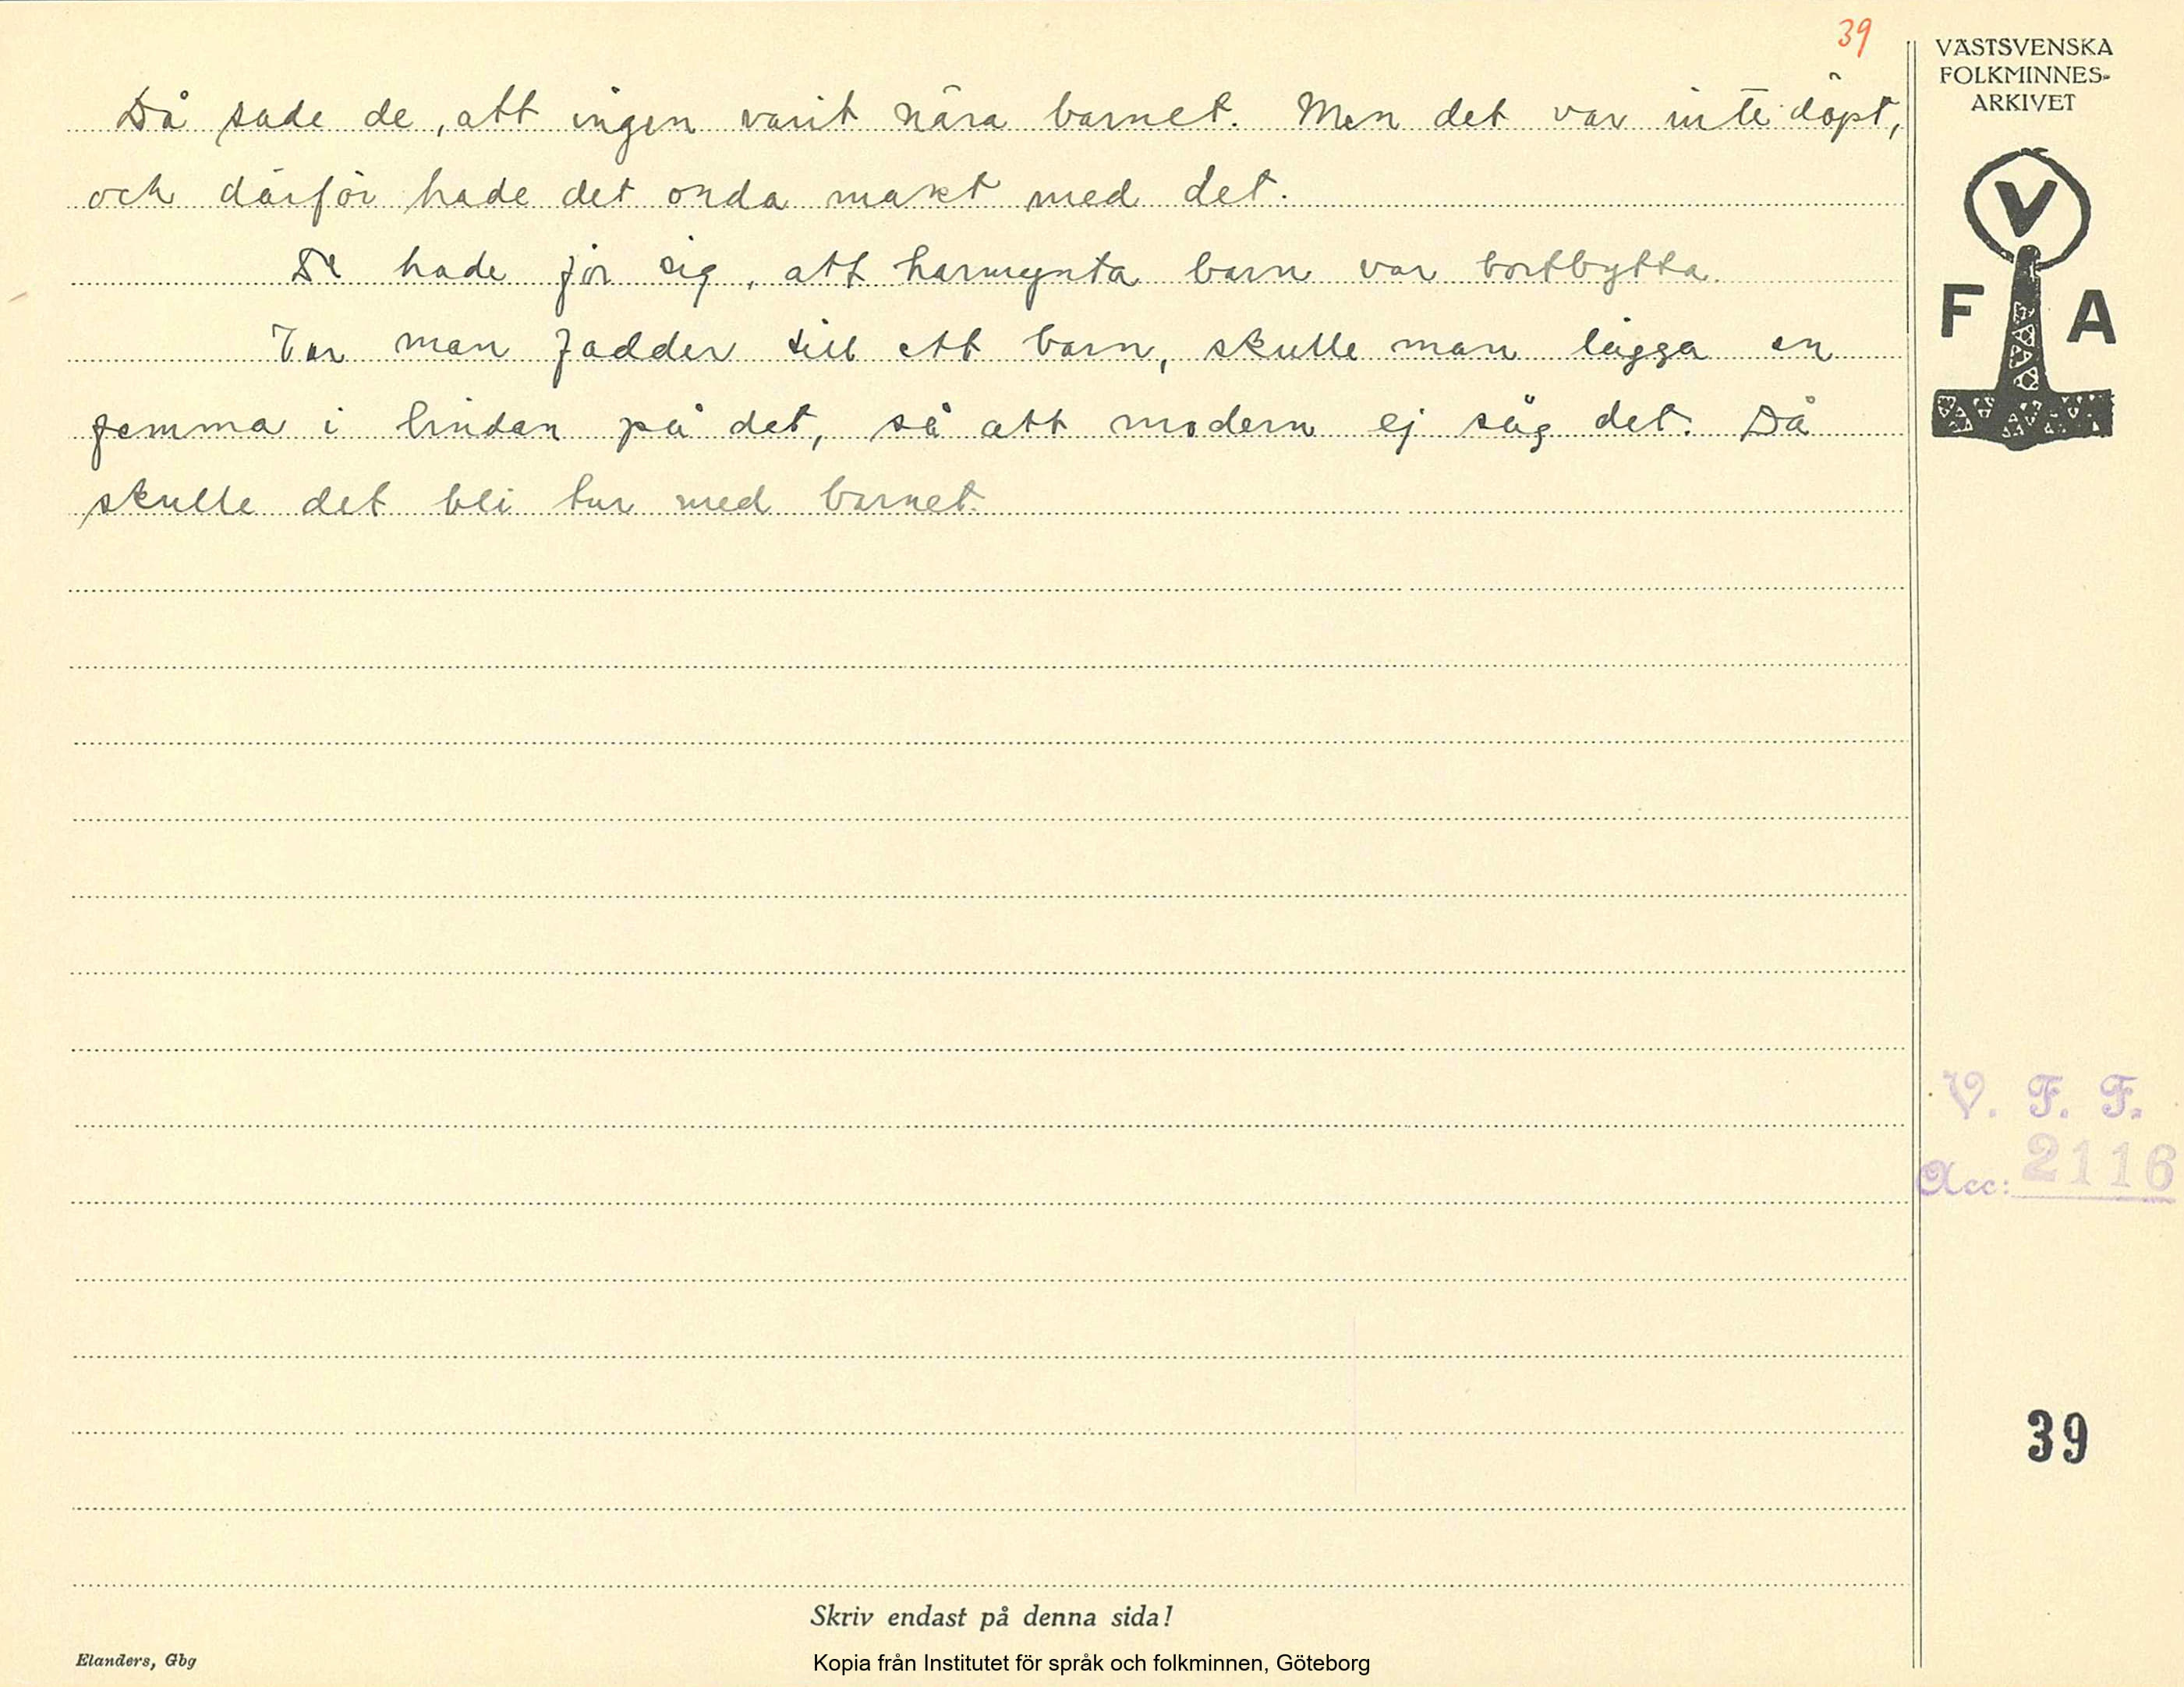 39
VÄSTSVENSKA
FOLKMINNES-
ARKIVET
Då sade de, att ingen varit nära barnet. Men det var inte döpt,
och därför hade det onda makt med det.
De hade för sig, att harmynta barn var bortbytta.
Var man fadder till ett barn, skulle man lägga en
femma i lindan på det, så att modern ej såg det. Då
skulle det bli tur med barnet.
V
F A
V. F. F.
Acc: 2116
39
Skriv endast på denna sida!
Elanders, Gbg
Kopia från Institutet för språk och folkminnen, Göteborg